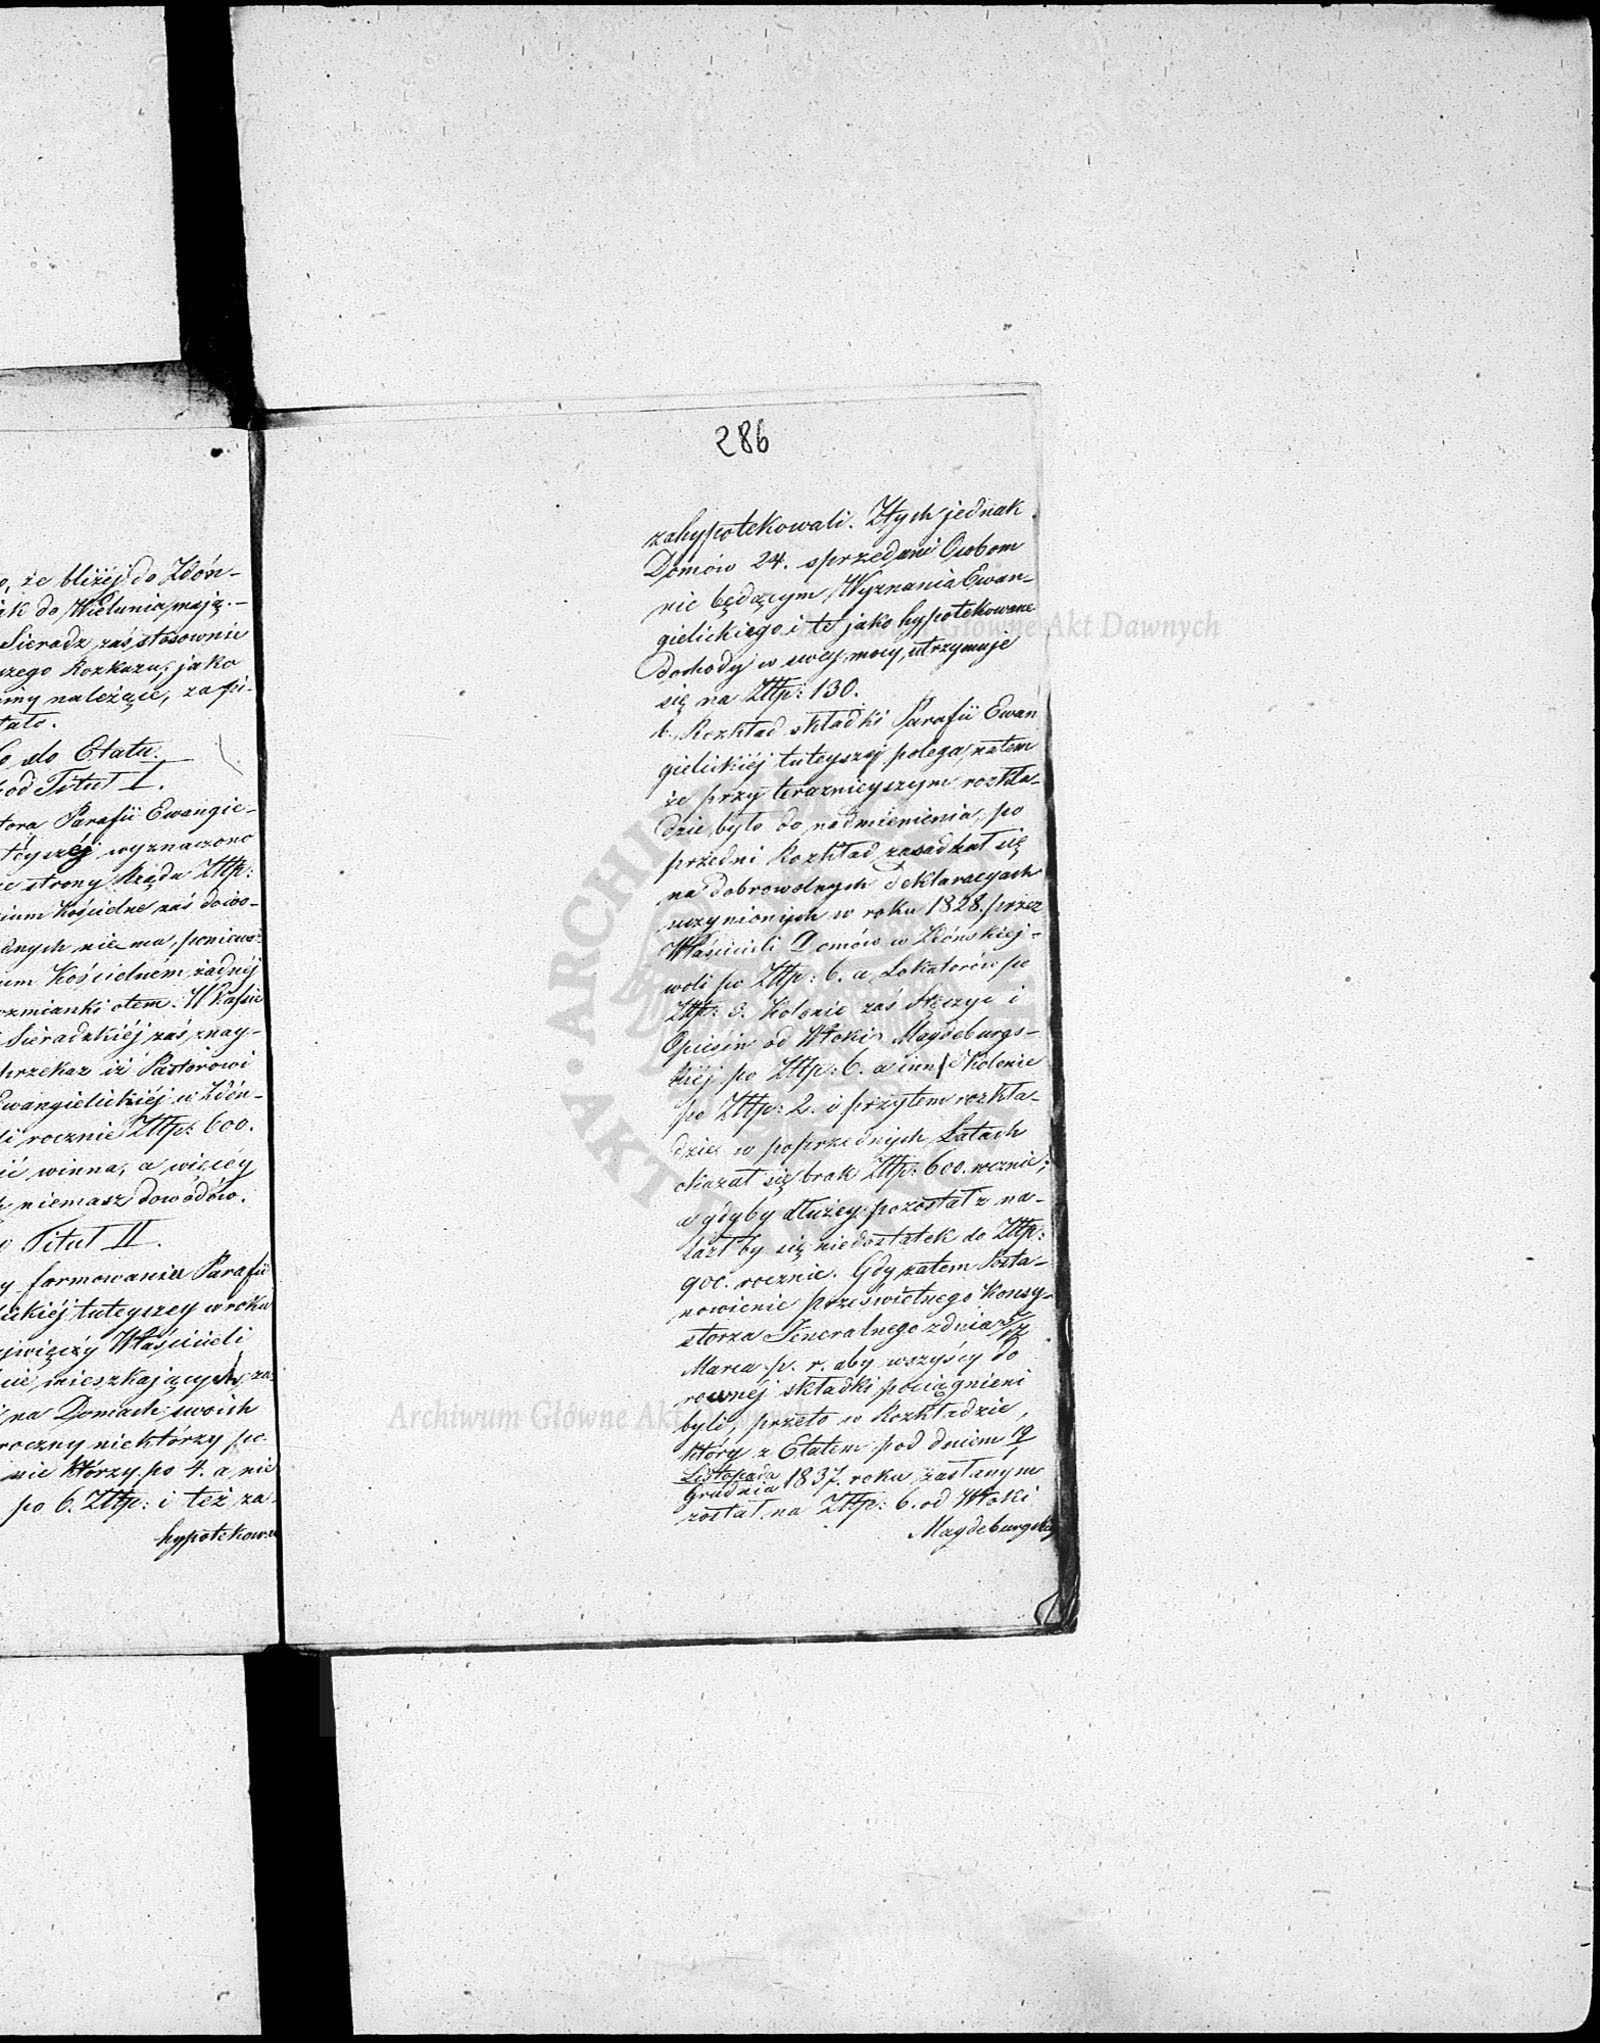 że bliżéj do Zdón-
ak do Wielunia mają.-
Sieradz zaś stosownie
szego Rozkazu, jako
miny należące, zapi-
tało.
do Etatu.
od Tituł I.
tora Parafii Ewangie-
téyszéj wyznaczono
ze strony Rządu Złtp:
ium Kościelne zaś dowo-
dnych nie ma, poniewa:
um Kościelném żadnéj
wzmianki otem. W Kassie
Sieradzkiéj zaś znay-
przekaz iż Pastorowi
Ewangielickiéj w Zdón-
li rocznie Złtp: 600.
ić winna, a więcéy
niemasz dowodów.
Tituł II.
y formowaniu Parafii
lickiéj tuteyszey w roku
ajwięcéy Właścicieli
cie mieszkających, za-
na Domach swoich
roczny niektórzy po
nie którzy po 4. a nie
po 6. Złtp: i też za-
hypotekowa
286
zahypotekowali. Ztych jednak
Domów 24. sprzedane Osobom
nie będącym Wyznania Ewan-
gielickiego i te jako hypotekowane
dochody w swey mocy utrzymuje
się na Złtp: 130.
b. Rozkład składki Parafii Ewan
gielickiéj tuteyszéj polega natem
że przy terazniéyszym rozkła-
dzie było do nadmienienia, po
przedni Rozkład zasadzał się
na dobrowolnych deklaracyach
uczynionych w roku 1828. przez
Właścicieli Domów w Zdónskiej-
woli po Złtp: 6. a Lokatorów po
Złtp: 3. Kolonie zaś Stęczyc i
Opiesin od Włoki Magdeburgs-
kiéj po Złtp: 6. a inne Kolonie
po Złtp: 2. i przytem rozkła-
dzie w poprzednich Latach
okazał się brak Złtp: 600. rocznie;
a gdyby dłużey pozostał zna-
lazł by się niedostatek do Złtp:
900. rocznie. Gdy zatem Posta-
nowienie prześwietnego Konsy-
storza Jeneralnego z dnia 5/17
Marca p. r. aby wszyscy do
rownéj składki pociągnieni
byli, przeto w Rozkładzie,
który z Etatem pod dniem 19/1
Listopada/Grudnia 1837. roku zasłanym
został na Złtp: 6. od Włoki
Magdeburgskiéj
Archiwum Główne Akt Dawnych
Archiwum Główne Akt Dawnych